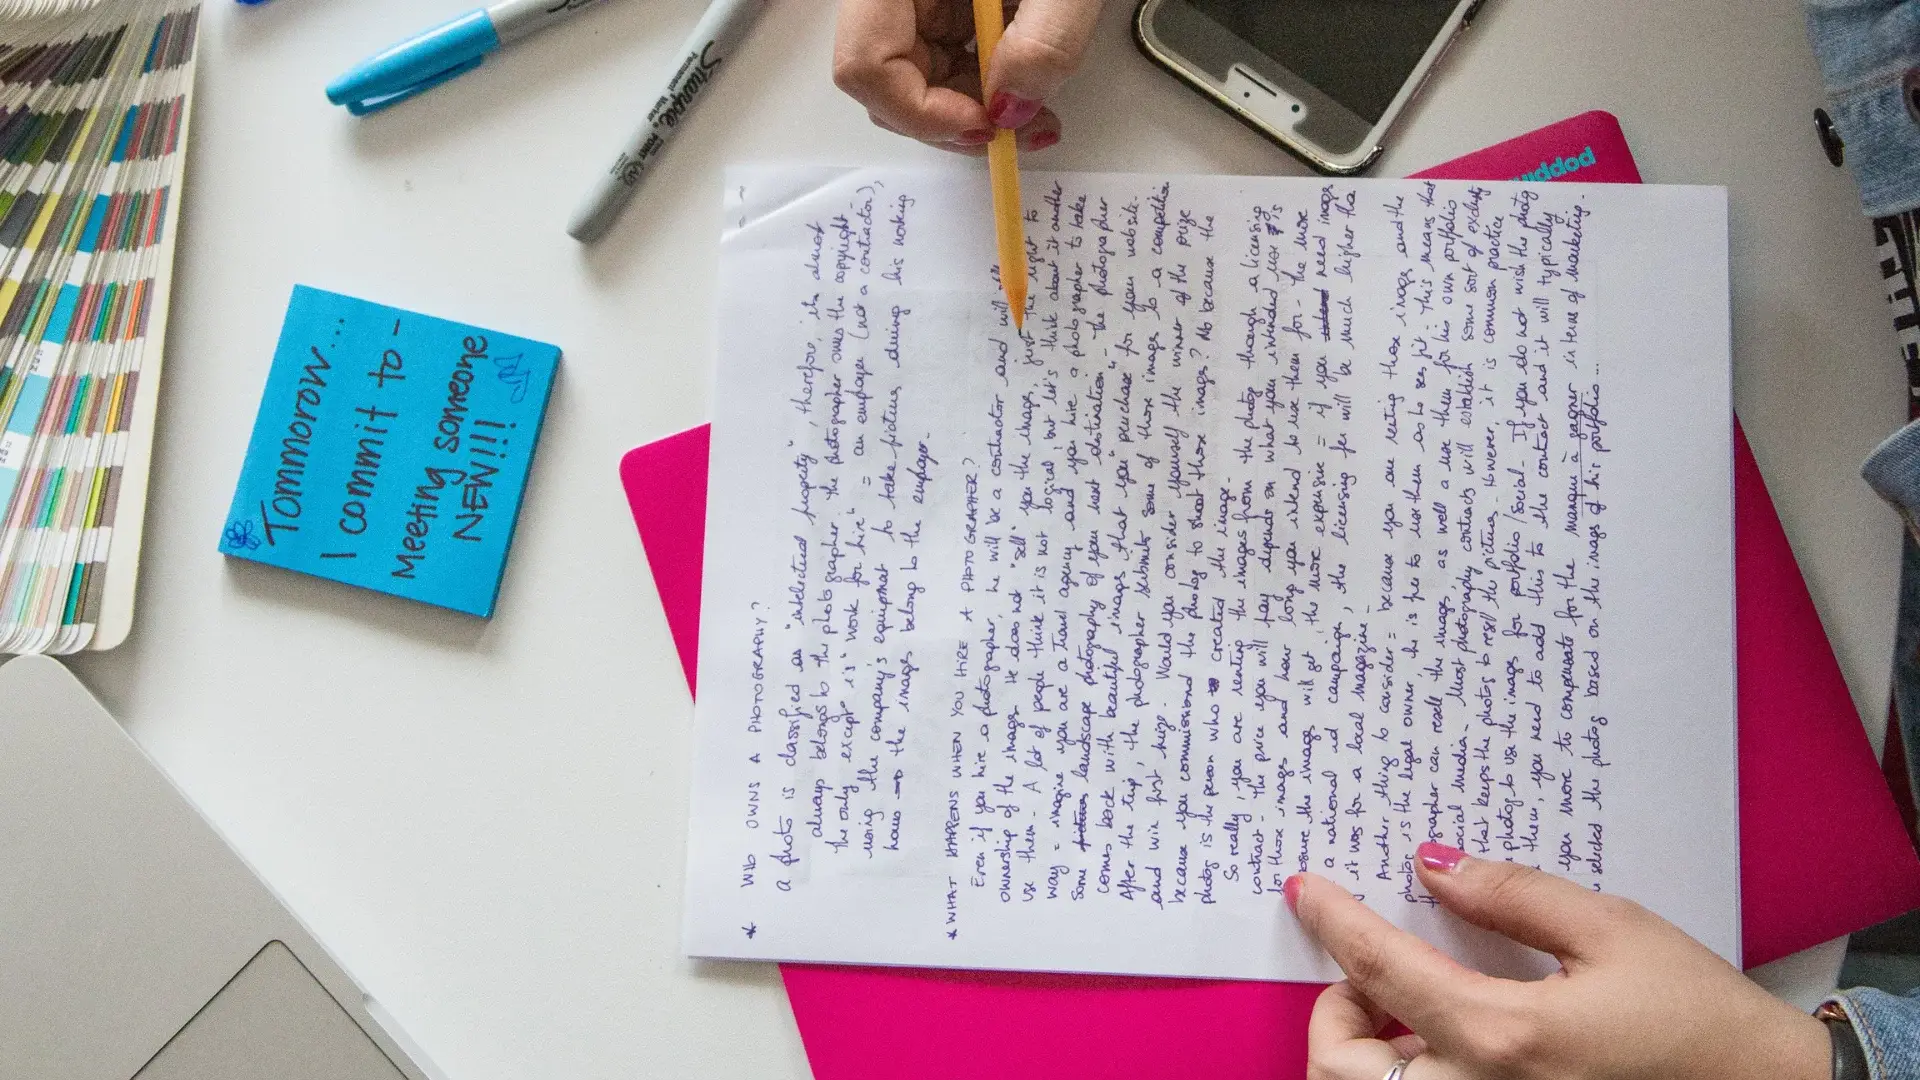 Tommorow...
I commit to -
Meeting someone
NEW!!!
Sharpie
Permanent Marker
FINE
poppin
* WHO OWNS A PHOTOGRAPHY?
A photo is classified as "intellectual property", therefore, its almost
always belongs to the photographer. The photographer owns the copyright -
the only except° is "work for hire" = an employee (not a contractor),
using the company's equipmat to take pictures during his working
hours the images belong to the employer.
* WHAT HAPPENS WHEN YOU HIRE A PHOTOGRAPHER?
Even if you hire a photographer, he will be a contractor and will
ownership of the images. He does not "sell" you the images, just the right to
use them. A lot of people think it is not logical, but let's think about it another
way = imagine you are a travel agency and you hire a photographer to take
some landscape photography of your next destination - the photographer
comes back with beautiful images that you "purchase" for your website.
After the trip, the photographer submits some of those images to a competition
and win first prize. Would you consider yourself the winner of the prize
because you commissioned the photog to shoot those images? No because the
photog is the person who created the image.
So really, you are renting the images from the photog though a licensing
contract - the price you will pay depends on what you intended use is
for those images and how long you intend to use them for - the more
exposure the images will get, the more expensive = if you need images
a national ad campaign, the licensing fee will be much higher tha
if it was for a local magazine.
Another thing to consider = because you are renting those images and the
photog is the legal owner, he is free to use them as he sees fit. This means that
the photographer can resell the images, as well a use them for his own portfolio
social media. Most photography contracts will establish some sort of
that keeps the photog to resell the pictures. However, it is common practice
photog to use the images for portfolio/social. If you do not wish the photog
them, you need to add this to the contract and it will typically
you more to compensate for the manque à gagner in terms of marketing.
selected the photog based on the images of his portfolio...